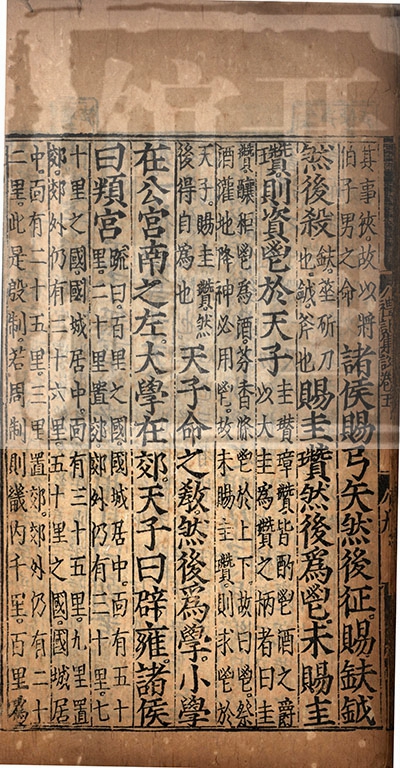 其事狹。故以將
伯子男之命
諸侯賜弓矢然後征。賜鈇鉞
然後殺
鈇。莝斫刀
也。鉞。斧也
賜圭瓚然後爲鬯。未賜圭
瓚則資鬯於天子
圭瓚璋瓚。皆酌鬯酒之爵
以大圭爲瓚之柄者曰圭
瓚。釀秬鬯爲酒。芬香條鬯於上下。故曰鬯。祭
酒灌地降神必用鬯。故未賜圭瓚。則求鬯於
天子。賜圭瓚然
後得自爲也
天子命之敎。然後爲學。小學
在公宮南之左。大學在郊。天子曰辟雍。諸侯
曰頖宮
疏曰。百里之國。國城居中。面有五十
里。二十里置郊。郊外仍有三十里。七
十里之國。國城居中。面有三十五里。九里置
郊。郊外仍有二十六里。五十里之國。國城居
中。面有二十五里。三里置郊。郊外仍有二十
二里。此是殷制。若周制則畿內千里。百里爲